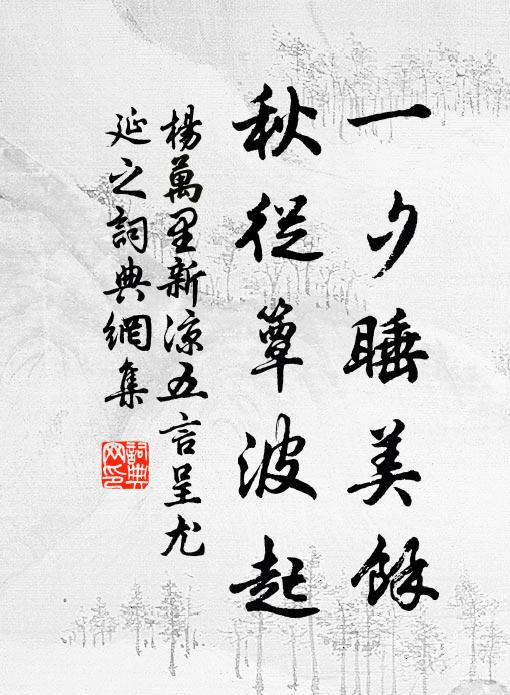 一夕睡美餘
秋從簟波起
楊萬里新涼五言呈尤
延之詞典網集
詞典網印